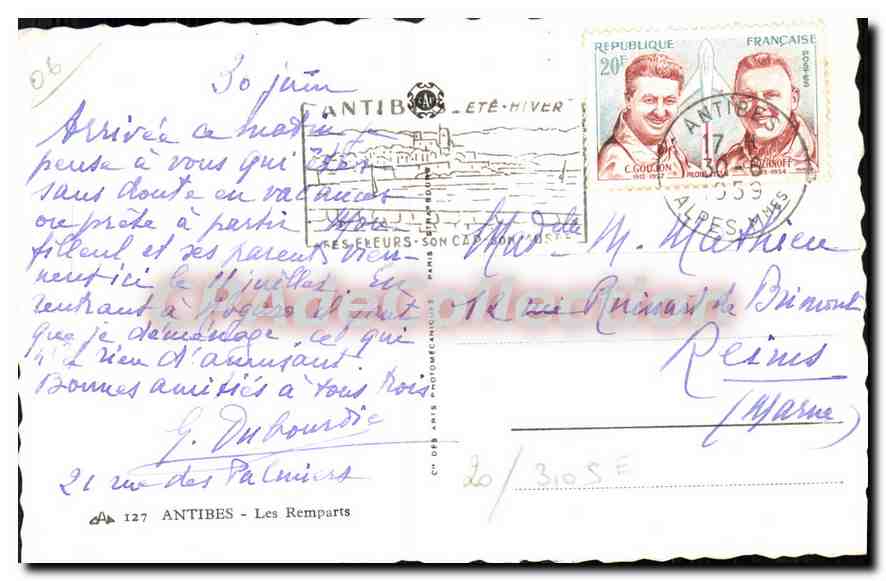 06
30 juin
Arrivée ce matin je
pense à vous qui êtes
sans doute en vacances
ou prête à partir Mon
filleul et ses parents vien-
nent ici le 11 juillet. En
rentrant à il faut
que je déménage ce qui
n'a rien d'amusant.
Bonnes amitiés à tous trois
G. Dubourdie
21 rue des Palmiers
127 ANTIBES - Les Remparts
Cie DES ARTS PHOTOMÉCANIQUES PARIS STRASBOURG
ANTIBES ÉTÉ-HIVER
SES FLEURS·SON CAP·SON MUSÉE
RÉPUBLIQUE FRANÇAISE
20F
POSTES
C.GOUJON
1912-1957
C.ROZANOFF
1905-1954
ANTIBES
17 H
30-6
1959
ALPES MMES
Mademelle M. Mathieu
12 rue Ruinart de Brimont
Reims
(Marne)
20/310SE
CPADeCollection